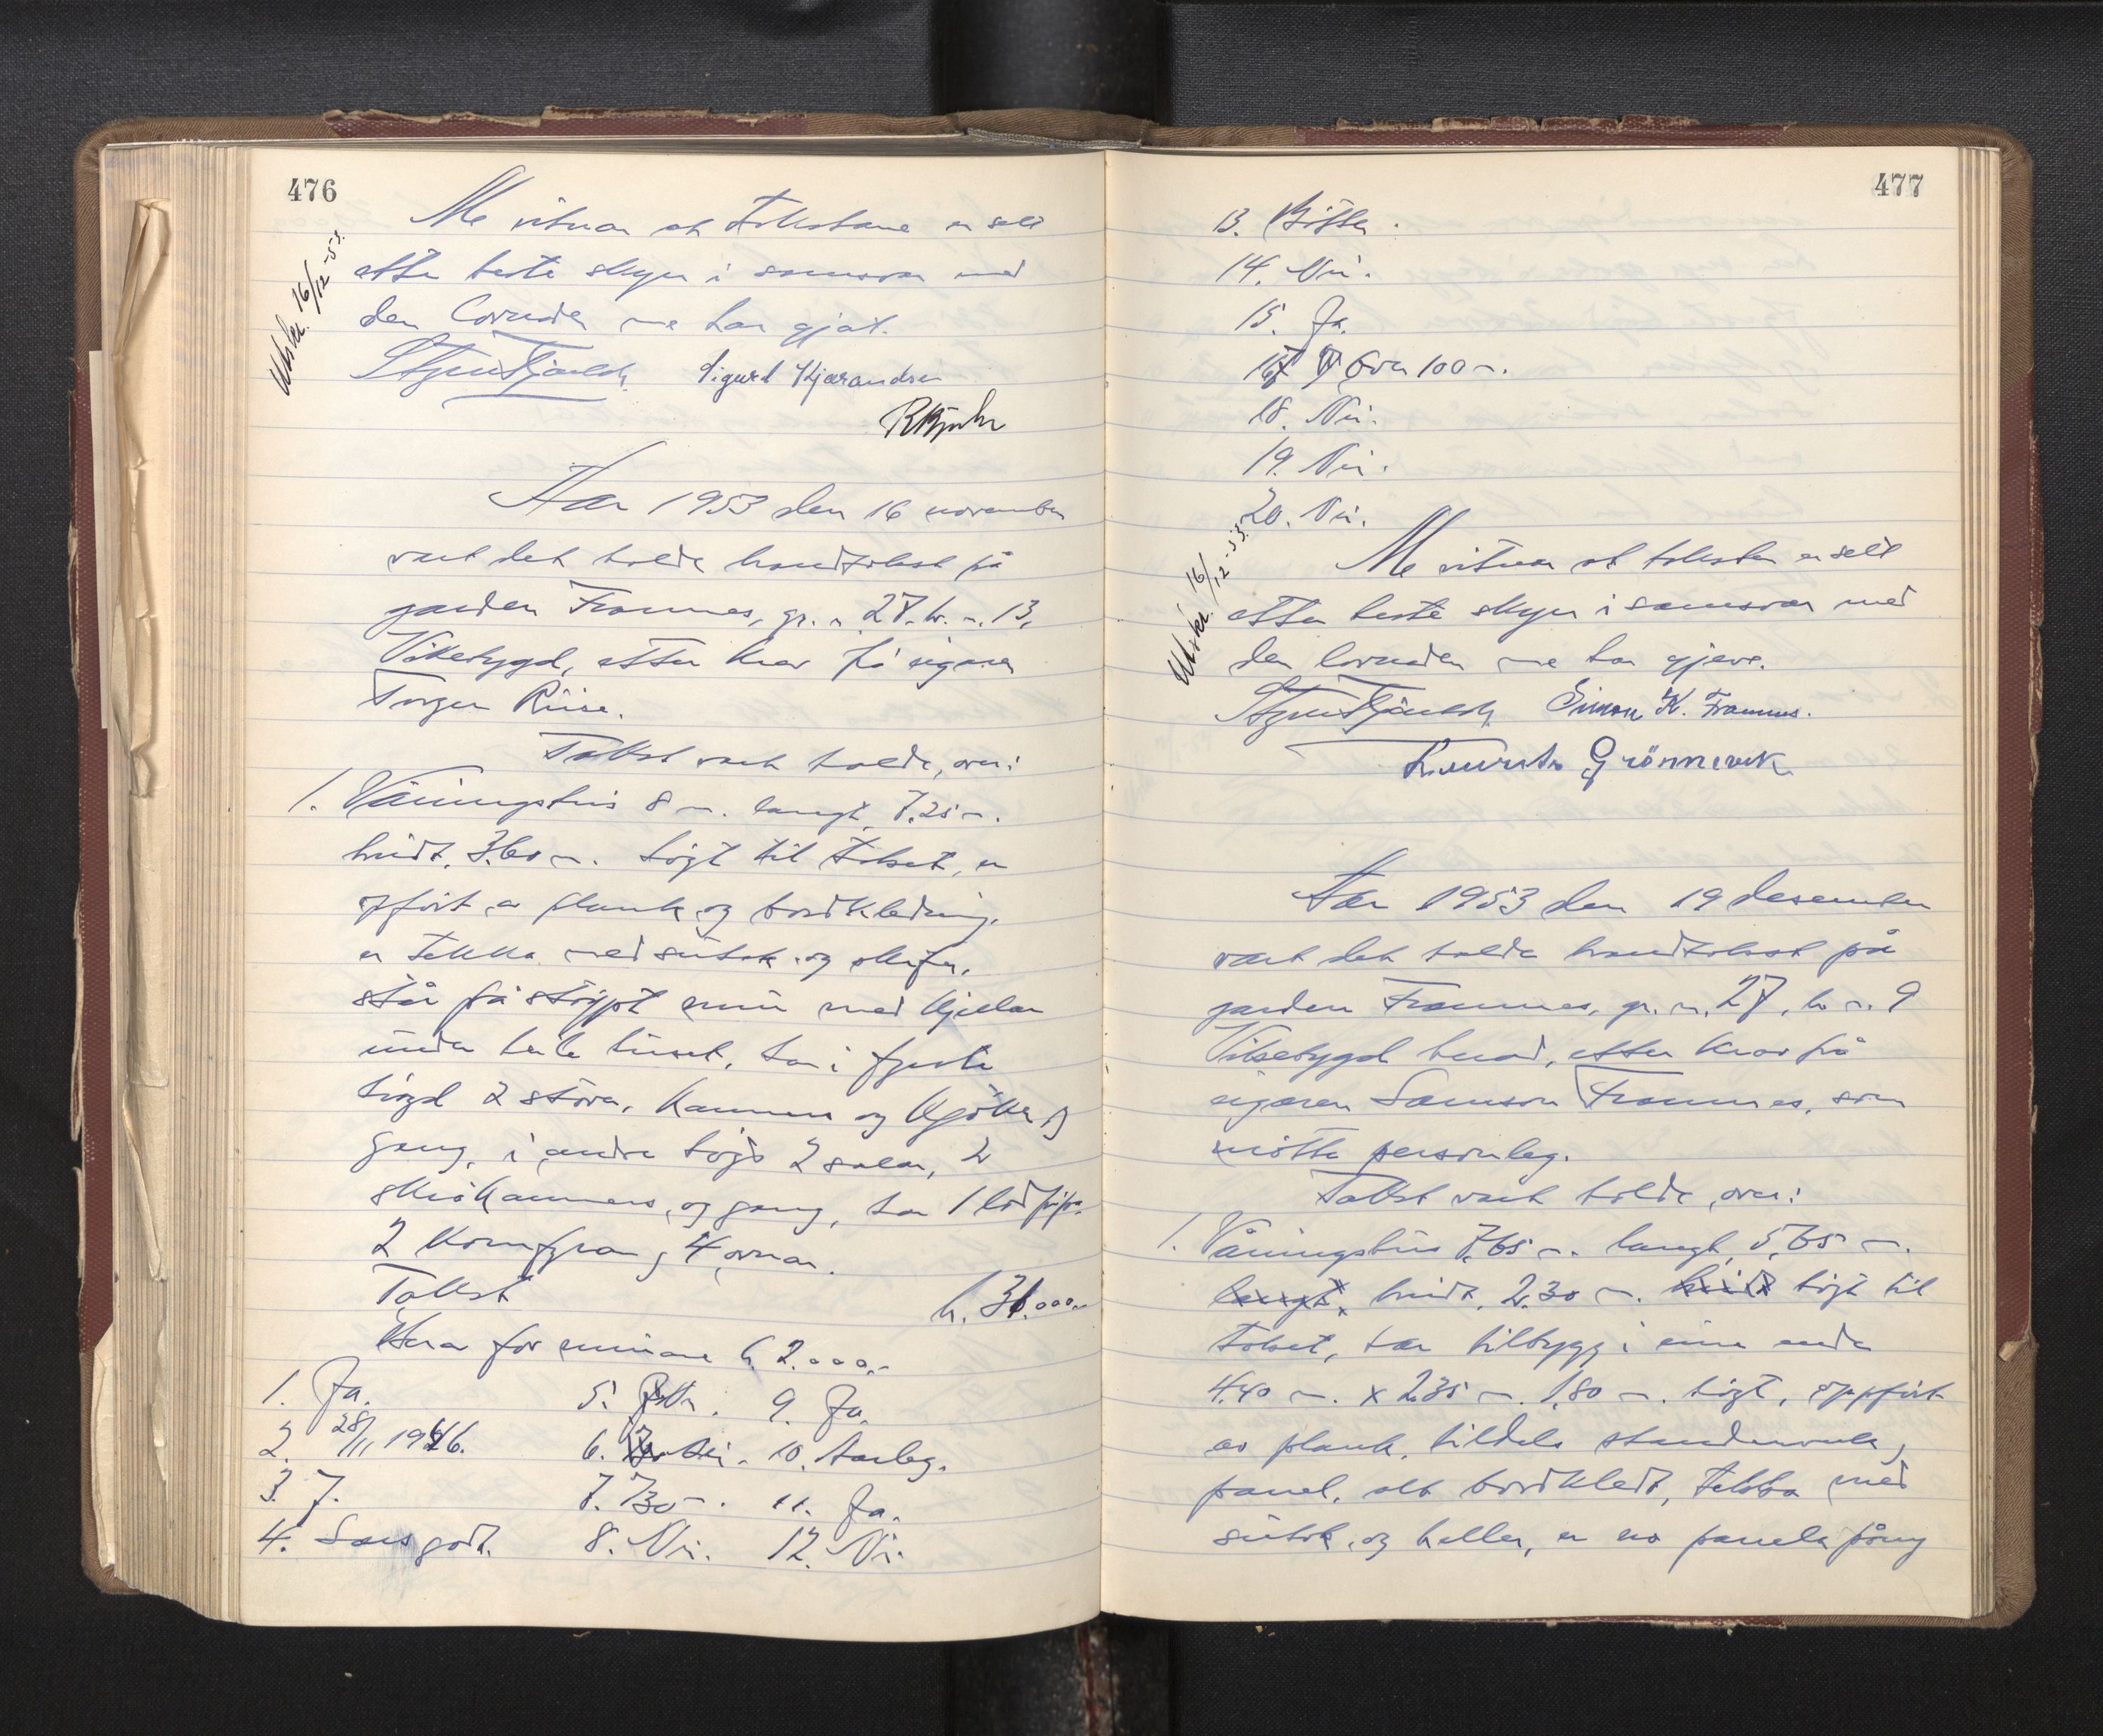 476
Me vitnar at takstane er sett
etter beste skyn i samsvar med
den lovnaden me har gjort.
Utskr. 16/12-53.
Sigurd Kjærandsen
Aar 1953 den 16 november
vart det halde brandtakst på
garden Framnes, gr. n. 27. br. n. 13,
Vikebygd, etter krav frå eigaren
Torger Riise.
Takst vart halde, over:
1. Våningshus 8 m. langt, 7.25 m.
breidt, 3.60 m. högt til taket, er
oppfört av plank og bordkledning,
er tekka med sutak og skifer,
står på stöypt mur med kjellar
under heile huset, har i fyrste
högd 2 stover, kammers og kjöken og
gang, i andre högd 2 salar, 2
skråkammers, og gang, har 1 lodpipe,
2 komfyrar, 4 omnar.
Takst kr. 31.000.-
Herav for murane kr. 2.000.-
1. Ja. 5. 9. Ja.
2. 28/11 1946. 6. Nei. 10. Aarleg.
3. 7. 7. 730 m. 11. Ja.
4. Sers godt. 8. Nei. 12. Nei.
477
13. Bötte.
14. Nei.
15. Ja.
Over 100 m.
18. Nei.
19. Nei.
20. Nei.
Me vitnar at taksten er sett
etter beste skyn i samsvar med
den lovnaden me har gjeve.
Utskr. 16/12-53.
Simon K. Framnes.
Laurits Grönnevik
Aar 1953 den 19 desember
vart det halde brandtakst på
garden Framnes, gr. n. 27, br. n. 9
Vikebygd herad, etter krav frå
eigaren Samson Framnes, som
mötte personleg.
Takst vart halde, over:
1. Våningshus 7,65 m. langt, 5,65 m.
langt, breidt, 2.30 m. breidt högt til
taket, har tilbygg i eine enden
4.40 m. x 2.35 m. 1,80 m. högt, oppfört
av plank, tildels standerverk,
panel, alt bordkledt, tekka med
sutak, og heller, er no panela påny